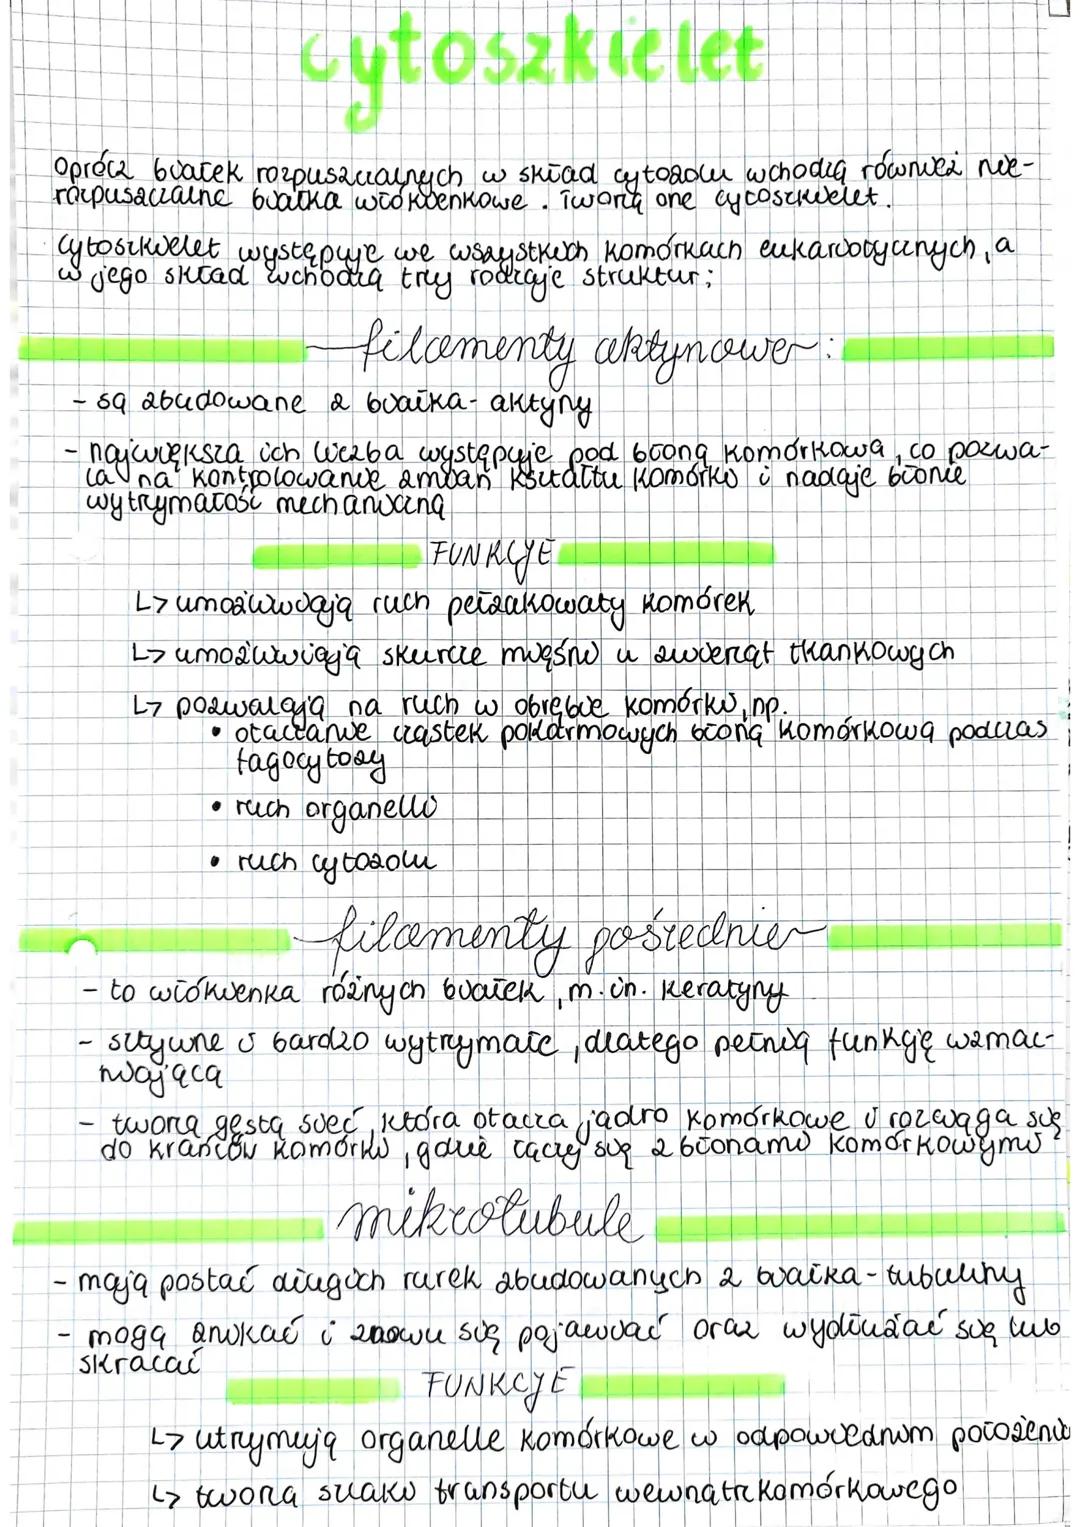 cytoszkielet
Oprócz białek rozpuszczalnych w skład cytozolu wchodzą również nie-
rozpuszczalne białka włókienkowe. Tworzą one cytoszkielet.
Cytoszkielet występuje we wszystkich komórkach eukariotycznych, a
w jego skład wchodzą trzy rodzaje struktur;
filamenty aktynowe:
- są zbudowane z białka - aktyny
- największa ich liczba występuje pod błoną komórkową, co pozwa-
la na kontrolowanie zmian kształtu komórki i nadaje błonie
wytrzymałość mechaniczną
FUNKCJE
↳ umożliwiają ruch pełzakowaty komórek
↳ umożliwiają skurcze mięśni u zwierząt tkankowych
↳ pozwalają na ruch w obrębie komórki, np.
• otaczanie cząstek pokarmowych błoną komórkową podczas
fagocytozy
• ruch organelli
• ruch cytozolu
filamenty pośrednie
- to włókienka różnych białek, m.in. keratyny
- sztywne i bardzo wytrzymałe, dlatego pełnią funkcję wzmac-
niającą
- tworzą gęstą sieć, która otacza jądro komórkowe i rozciąga się
do krańców komórki, gdzie łączy się z błonami komórkowymi
mikrotubule
- mają postać długich rurek zbudowanych z białka - tubuliny
- mogą znikać i znowu się pojawiać oraz wydłużać się lub
skracać
FUNKCJE
↳ utrzymują organelle komórkowe w odpowiednim położeniu
↳ tworzą szlaki transportu wewnątrzkomórkowego